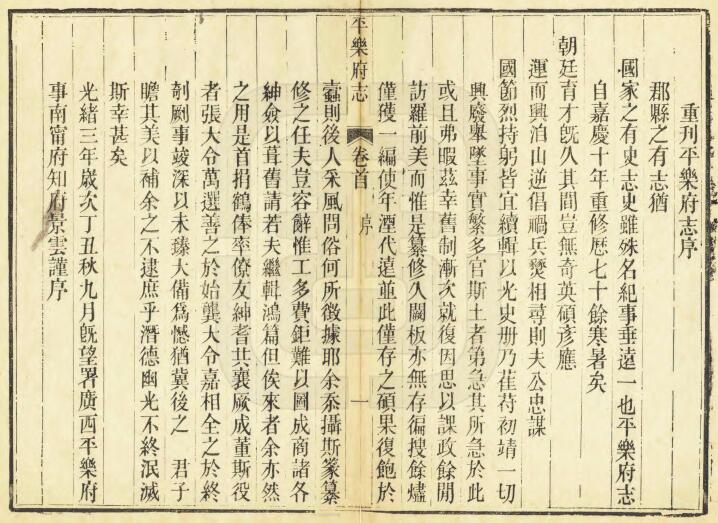 重刊平樂府志序
郡縣之有志猶
國家之有史志史雖殊名紀事垂遠一也平樂府志
自嘉慶十年重修歷七十餘寒暑矣
朝廷育才旣久其間豈無奇英碩彥應
運而興洎山逆倡禍兵燹相尋則夫公忠謀
國節烈持躬皆宜續輯以光史册乃萑苻初靖一切
興廢舉墜事實繁多官斯土者第急其所急於此
或且弗暇茲幸舊制漸次就復因思以課政餘閒
訪羅前美而惟是纂修久闕板亦無存徧搜餘燼
僅獲一編使年湮代遠並此僅存之碩果復飽於
平樂府志
卷首
序
一
蠹則後人采風問俗何所徵據耶余忝攝斯篆纂
修之任夫豈容辭惟工多費鉅難以圖成商諸各
紳僉以葺舊請若夫繼輯鴻篇但俟來者余亦然
之用是首捐鶴俸率僚友紳耆共襄厥成董斯役
者張大令萬選善之於始龔大令嘉相全之於終
剞劂事竣深以未臻大備爲憾猶冀後之 君子
瞻其美以補余之不逮庶乎潛德幽光不終泯滅
斯幸甚矣
光緒三年歲次丁丑秋九月旣望署廣西平樂府
事南甯府知府景雲謹序